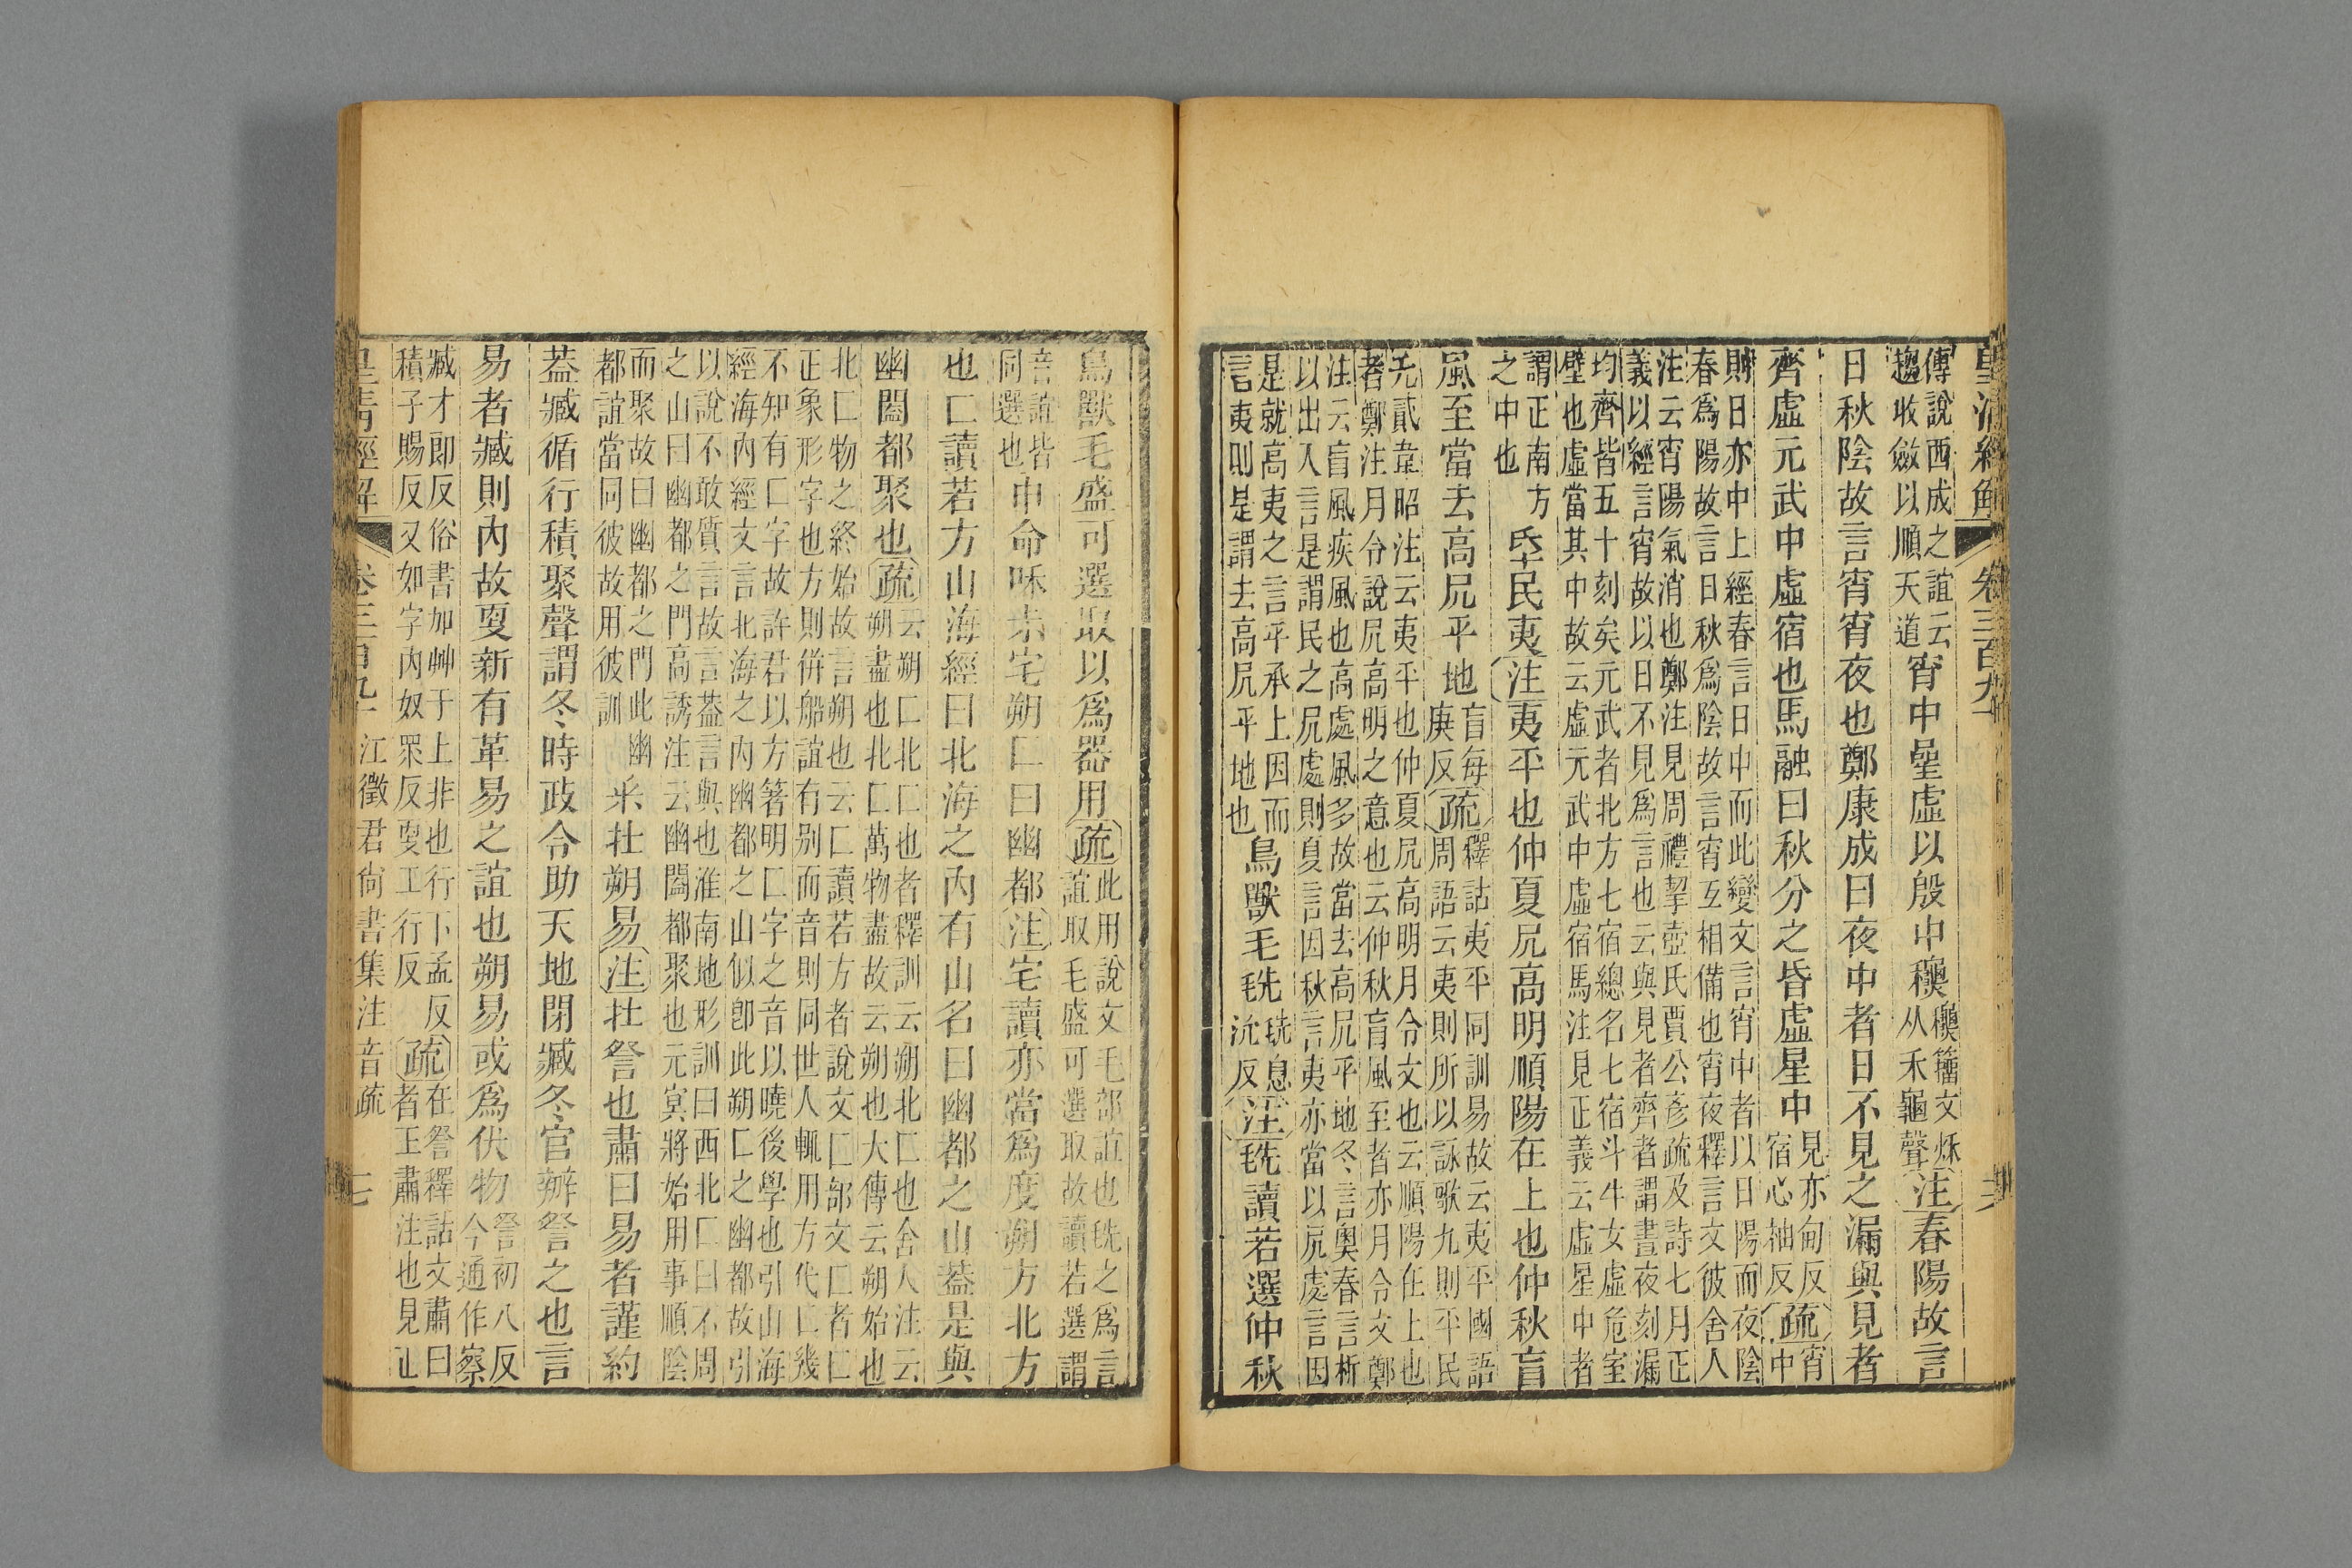 皇清經解 卷三百九十
傳說西成之誼云
趨收斂以順天道
宵中曐虛以殷中穐
穐籀文烁
从禾龜聲
注春陽故言
日秋陰故言宵宵夜也鄭康成曰夜中者日不見之漏與見者
齊虛元武中虛宿也馬融曰秋分之昏虛星中
見亦甸反
宿心袖反
疏
宵
中
則日亦中上經春言日中而此變文言宵中者以日陽而夜陰
春爲陽故言日秋爲陰故言宵互相備也宵夜釋言文彼舍人
注云宵陽氣消也鄭注見周禮挈壺氏賈公彥疏及詩七月正
義以經言宵故以日不見爲言也云與見者齊者謂晝夜刻漏
均齊皆五十刻矣元武者北方七宿總名七宿斗牛女虛危室
壁也虛當其中故云虛元武中虛宿馬注見正義云虛星中者
謂正南方
之中也
氒民夷注夷平也仲夏凥高明順陽在上也仲秋盲
風至當去高凥平地
盲每
庚反
疏
釋詁夷平同訓易故云夷平國語
周語云夷則所以詠歌九則平民
无貳韋昭注云夷平也仲夏凥高明月令文也云順陽在上也
者鄭注月令說凥高明之意也云仲秋盲風至者亦月令文鄭
注云盲風疾風也高處風多故當去高凥平地冬言奧春言析
以出入言是謂民之凥處則夏言因秋言夷亦當以凥處言因
是就高夷之言平承上因而
言夷則是謂去高凥平地也
鳥獸毛毨
毨息
沇反
注毨讀若選仲秋
鳥獸毛盛可選取以爲器用
疏
此用說文毛部誼也毨之爲言
誼取毛盛可選取故讀若選謂
音誼皆
同選也
申命咊未宅朔匚曰幽都注宅讀亦當爲度朔方北方
也匚讀若方山海經曰北海之內有山名曰幽都之山葢是與
幽闔都聚也
疏
云朔匚北匚也者釋訓云朔北匚也舍人注云
朔盡也北匚萬物盡故云朔也大傳云朔始也
北匚物之終始故言朔也云匚讀若方者說文匚部文匚者匚
正象形字也方則倂船誼有别而音則同世人輒用方代匚幾
不知有匚字故許君以方箸明匚字之音以曉後學也引山海
經海內經文言北海之內幽都之山似卽此朔匚之幽都故引
以說不敢質言故言葢言與也淮南地形訓曰西北匚曰不周
之山曰幽都之門高誘注云幽闔都聚也元冥將始用事順陰
而聚故曰幽都之門此幽
都誼當同彼故用彼訓
釆𡉈朔易注𡉈詧也肅曰易者謹約
葢臧循行積聚聲謂冬時政令助天地閉臧冬官辦詧之也言
易者臧則內故耎新有革易之誼也朔易或爲伏物
詧初八反
今通作察
臧才郎反俗書加艸于上非也行下孟反
積子賜反又如字內奴罙反耎工行反
疏
在詧釋詁文肅曰
者王肅注也見正
皇清經解 卷三百九十 江徵君尙書集注音疏 七